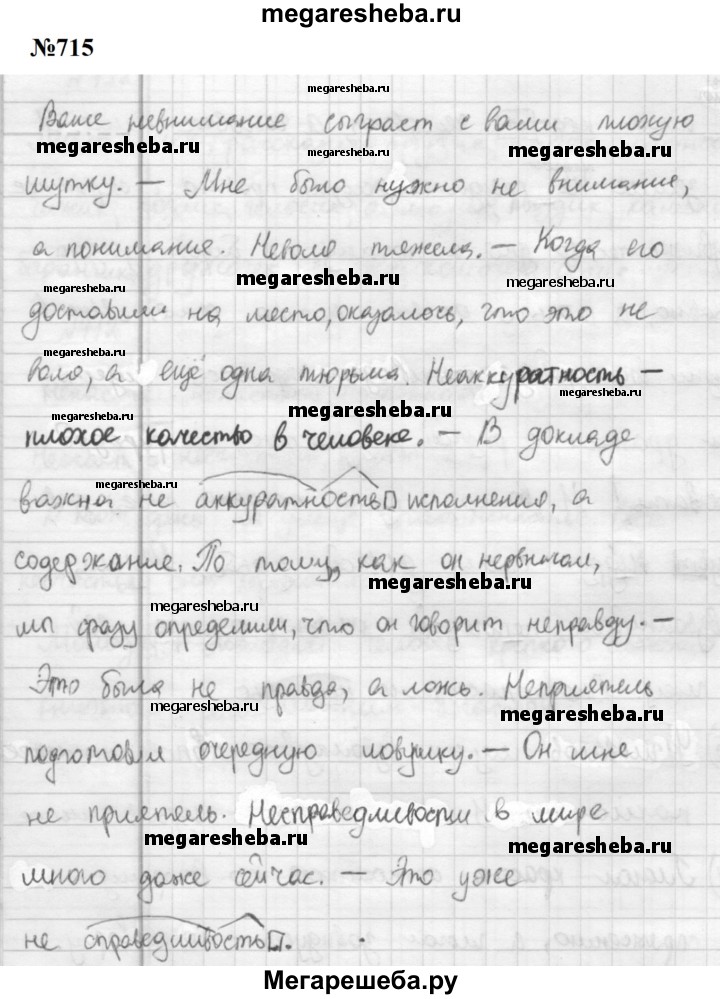 megaresheba.ru
№715
megaresheba.ru
Ваше невнимание сыграет с вами плохую
megaresheba.ru megaresheba.ru megaresheba.ru
шутку. — Мне было нужно не внимание,
а понимание. Неволя тяжела. — Когда его
megaresheba.ru megaresheba.ru megaresheba.ru
доставили на место, оказалось, что это не
megaresheba.ru
воля, а ещё одна тюрьма. Неаккуратность —
megaresheba.ru megaresheba.ru megaresheba.ru
плохое качество в человеке. — В докладе
важна не аккуратность исполнения, а
содержание. По тому, как он нервничал,
megaresheba.ru megaresheba.ru
мы фразу определили, что он говорит неправду. —
Это была не правда, а ложь. Неприятель
megaresheba.ru megaresheba.ru
подготовил очередную ловушку. — Он мне
не приятель. Несправедливости в мире
megaresheba.ru megaresheba.ru
много даже сейчас. — Это уже
не справедливость.
Мегарешеба.ру